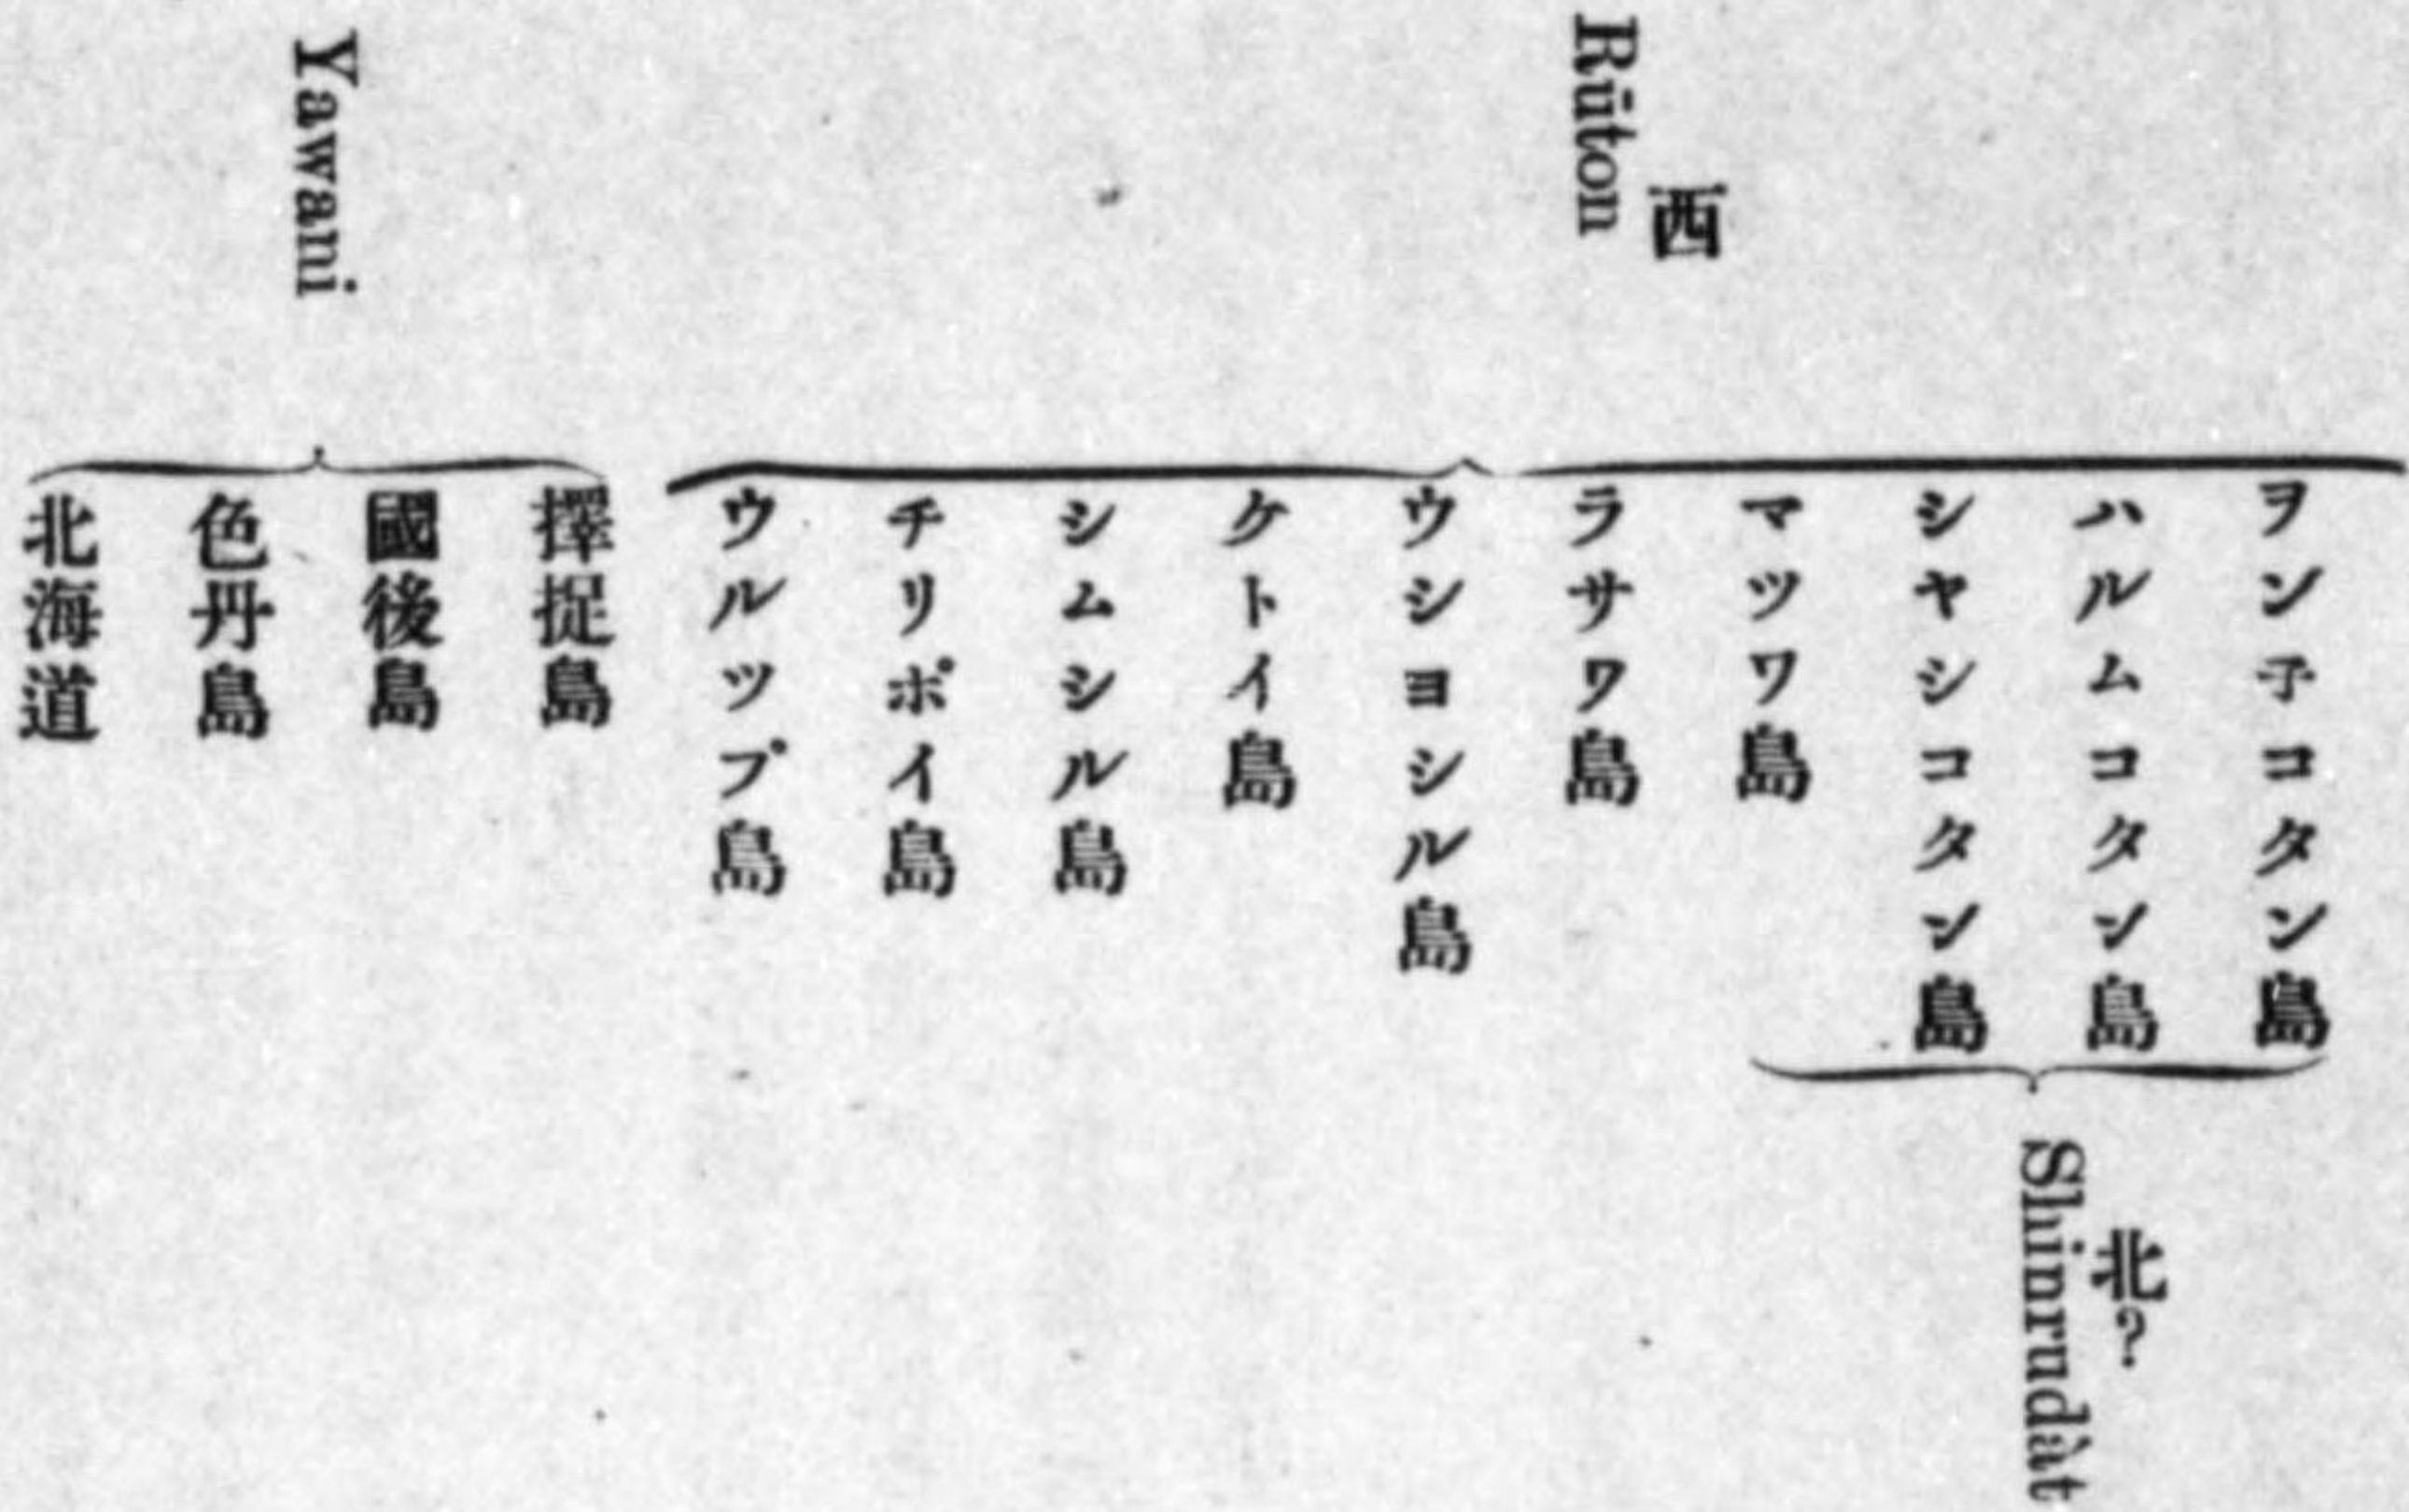 西
Rūton
ヲン子コタン島
ハルムコタン島
シヤシコタン島
北?
Shinrudàt
マツワ島
ラサワ島
ウシヨシル島
ケトイ島
シムシル島
チリポイ島
ウルツプ島
Yawani
擇捉島
國後島
色丹島
北海道